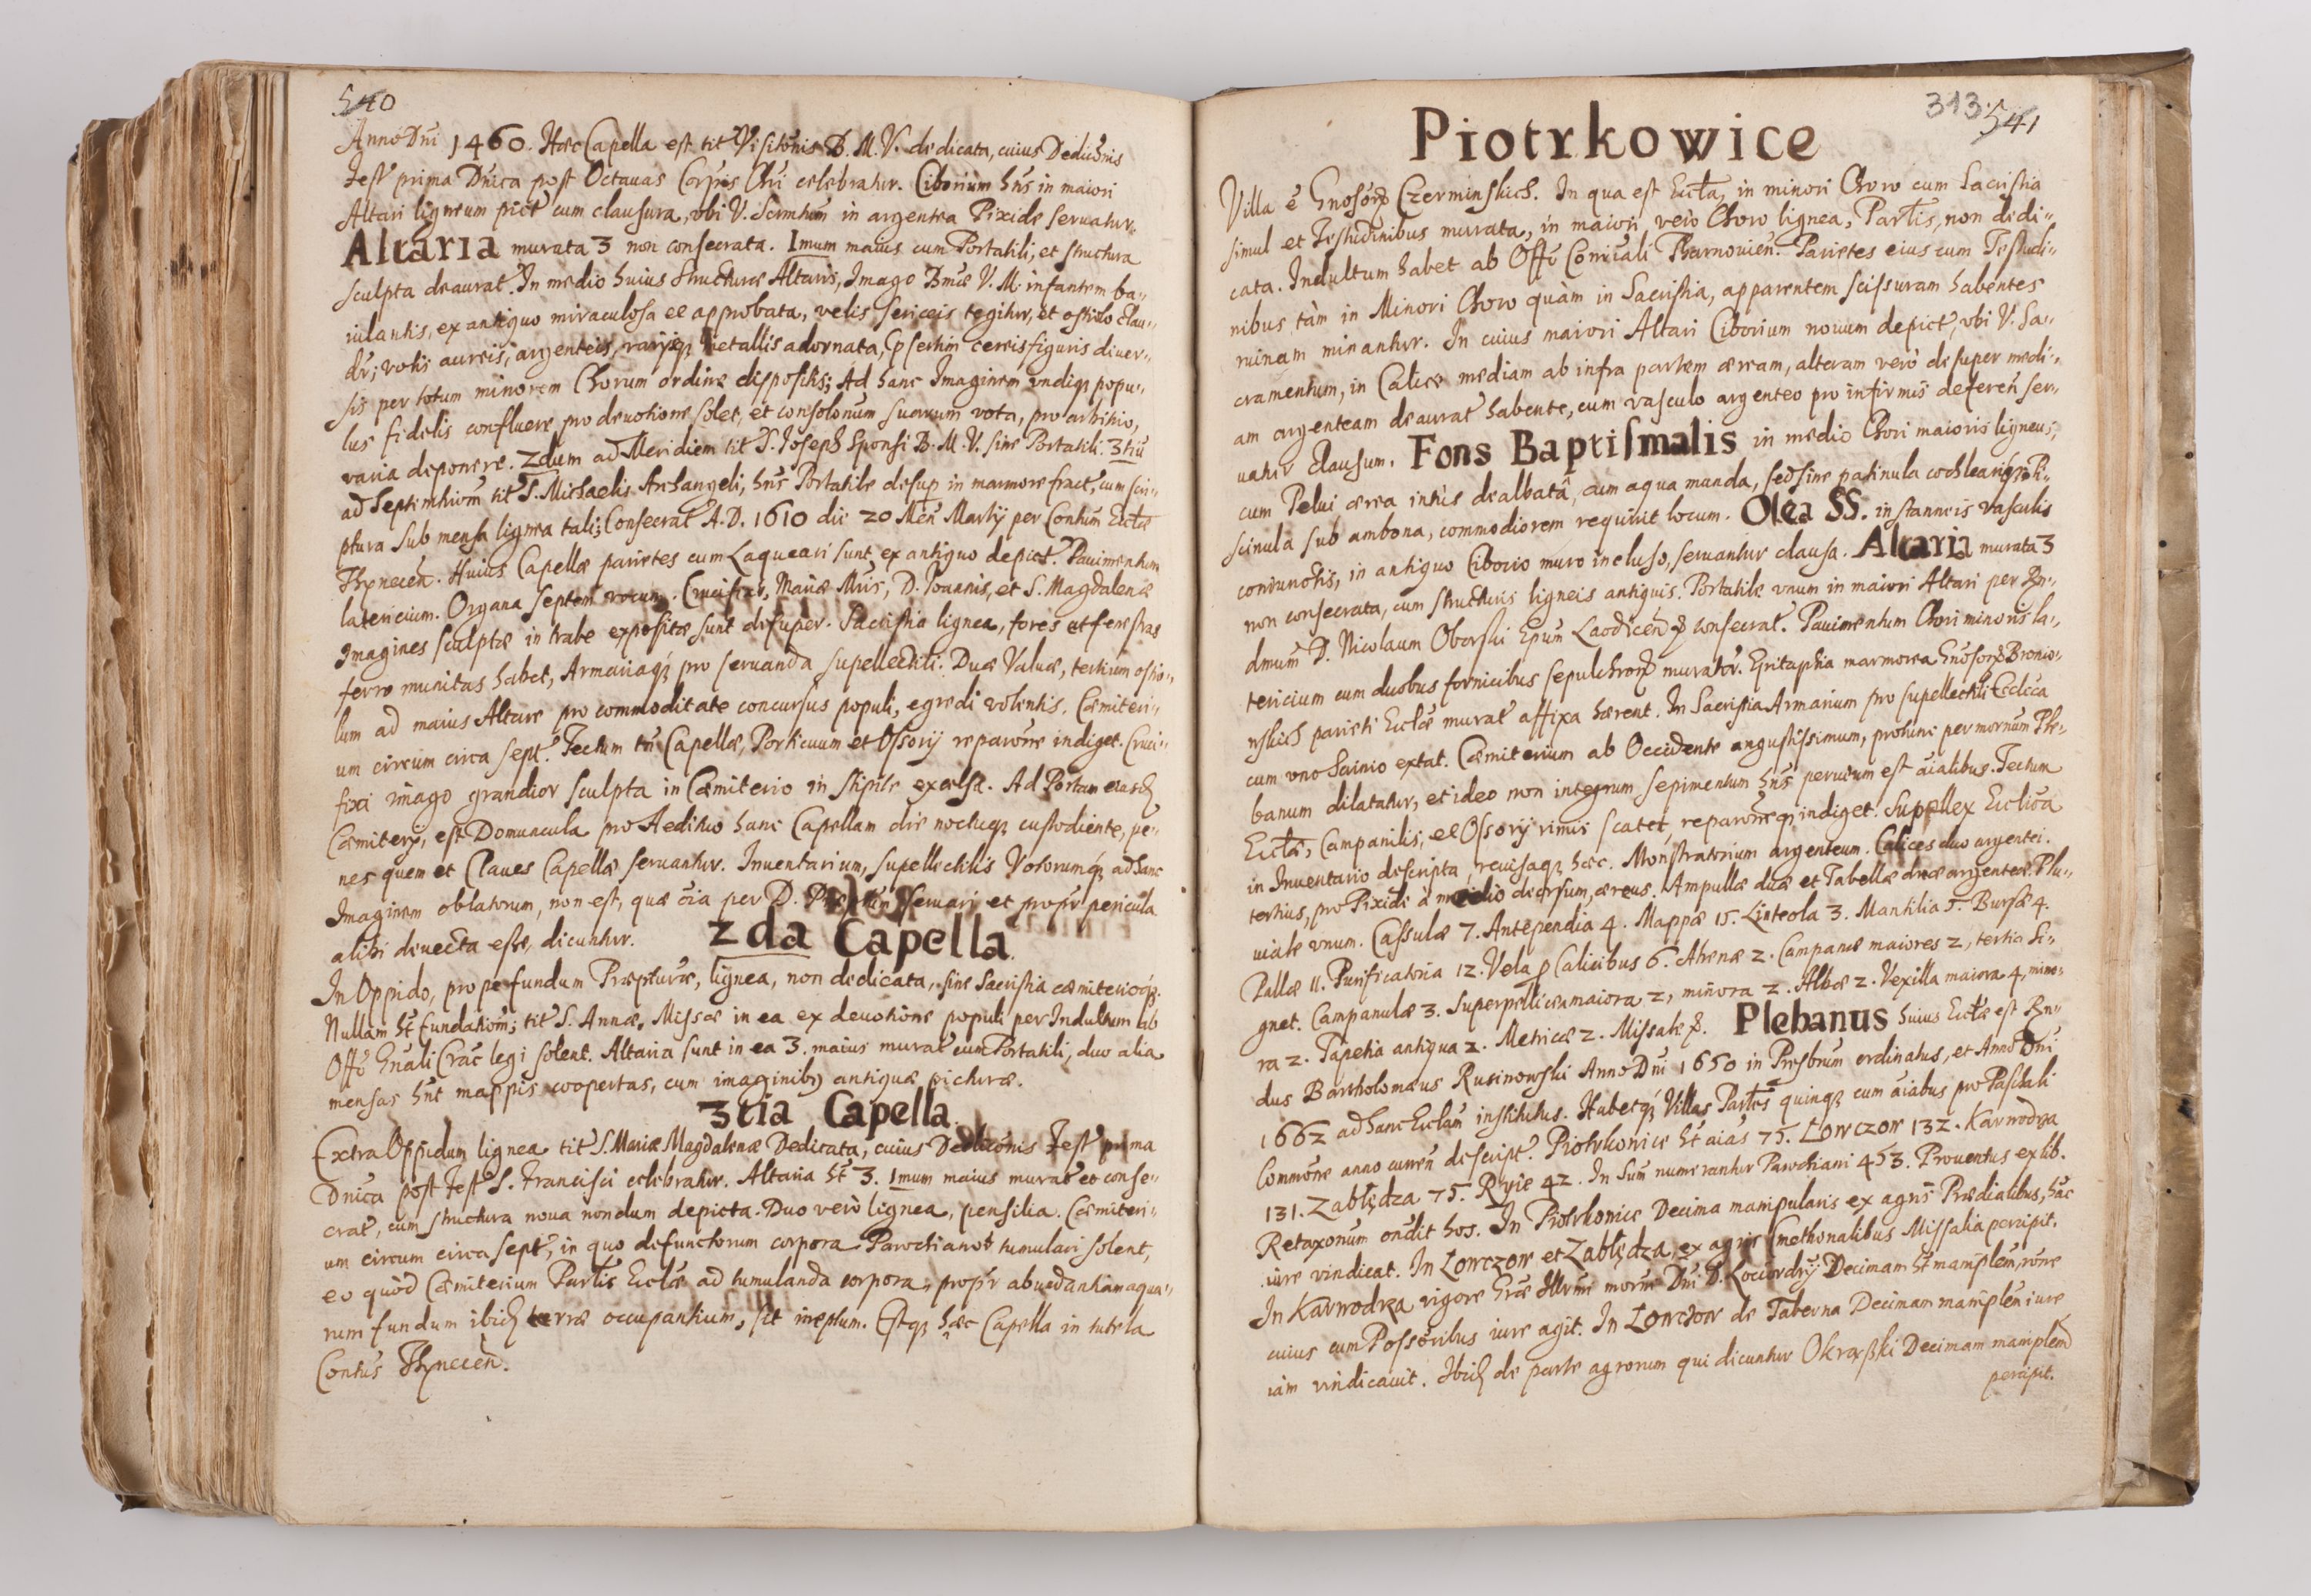 540
Anno Dni 1460. Hæc Capella est titł Visitõnis B. M. V. dedicata, cuius Dedicõnis
Fest' prima Dnica post Octauas Corpris Chri celebratur. Ciborium hñs in maiori
Altari ligneum pict' cum clausura, vbi V. Scrmtum in argentea Pixide seruatur.
Altaria murata 3 non consecrata. Imum maius cum Portatili, et structura
sculpta deaurat'. In medio huius structuræ Altaris, Imago Bmæ V. M. infantem ba„
iulantis, ex antiquo miraculosa et approbata, velis sericeis tegitur, et ostiolo clau„
dr; votis aureis, argenteis, varijsq; metallis adornata, p̱sertim cereis figuris diuer„
sis per totum minorem Chorum ordine dispositis; Ad hanc Imaginem vndiq; popu„
lus fidelis confluere pro deuotione solet, et consolonum suarum vota, pro arbitrio,
varia deponere. 2dum ad Meridiem tit S. Joseph Sponsi B. M. V. sine Portatili. 3tiũ
ad Septentriõm tit S. Michaelis Archangeli, hñs Portatile desup in marmore fract', cum scri„
ptura sub mensa lignea tali; Consecrat' A. D. 1610 die 20 Men̄ Martij per Contum Eccłæ
Thynecen̄. Huius Capellæ parietes cum Laqueari sunt ex antiquo depict'. Pauimentum
latericium. Organa septem vocum. Crucifixi, Mariæ Mris, D. Joannis, et S. Magdalenæ
Imagines sculptæ in trabe expositæ sunt desuper. Sacristia lignea, fores et fenestras
ferro munitas habet, Armariaq; pro seruanda supellectili. Duæ Valuæ, tertium ostio„
lum ad maius Altare pro commoditate concursus populi, egredi volentis. Cæmiteri„
um circum circa sept'. Tectum tñ Capellæ, Porticuum et Ossorij reparõne indiget. Cruci„
fixi imago grandior sculpta in Cæmiterio in stipite excelsa. Ad Portam eiusd
Cæmiterij, est Domuncula pro Aedituo hanc Capellam die noctuq; custodiente, pe„
nes quem et Claues Capellæ seruantur. Inuentarium, supellectilis Votorumq; ad hanc
Imaginem oblatorum, non est, quæ oĩa per D. seruari et propr pericula
alibi deuecta esse, dicuntur.
2da Capella.
In Oppido, prope fundum Præpturæ, lignea, non dedicata, sine Sacristia cæmiterioq;.
Nullam ht fundatiõm; tit S. Annæ, Missæ in ea ex deuotione populi per Indultum ab
Offo Gnali Crac legi solent. Altaria sunt in ea 3. maius murat' cum Portatili, duo alia
mensas hñt mappis coopertas, cum imaginibq antiquæ picturæ.
3tia Capella.
Extra Oppidum lignea tit S. Mariæ Magdalenæ Dedicata, cuius Dedicõnis Fest' prima
Dnica post Fest' S. Francisci celebratur. Altaria ht 3. Imum maius murat' et conse„
crat', cum structura noua nondum depicta. Duo verò lignea, pensilia. Cæmiteri„
um circum circa sept', in quo defunctorum corpora Parochianor tumulari solent,
eo quòd Cæmiterium Partis Eccłæ ad tumulanda corpora, propr abundantiam aqua„
rum fundum ibid terræ occupantium, sit ineptum. Estq; hæc Capella in tutela
Contus Thynecen̄.
313.
541
Piotrkowice
Villa ẽ Gnosorꝝ Czerminskich. In qua est Eccła, in minori Choro cum Sacristia
simul et Testudinibus murata, in maiori verò Choro lignea, Partis, non dedi„
cata. Indultum habet ab Offo Conuali Tharnouien̄. Parietes eius cum Testudi„
nibus tàm in Minori Choro quàm in Sacristia, apparentem scissuram habentes
ruinam minantur. In cuius maiori Altari Ciborium nouum depict', vbi V. Sa„
cramentum, in Calice mediam ab infra partem æream, alteram verò desuper medi„
am argenteam deaurat' habente, cum vasculo argenteo pro infirmis deferen̄ ser„
uatur clausum. Fons Baptismalis in medio Chori maioris ligneus,
cum Pelui ærea intus dealbatâ, cum aqua munda, sed sine patinula cochleariq; Pi„
scinula sub ambona, commodiorem requirit locum. Olea SS. in stanneis vasculis
coniunctis, in antiquo Ciborio muro incluso, seruantur clausa. Altaria murata 3
non consecrata, cum structuris ligneis antiquis. Portatile vnum in maiori Altari per Rn„
dmum D. Nicolaum Oborski Epum Laodicen̄ consecrat'. Pauimentum Chori minoris la„
tericium cum duobus fornicibus sepulchrorꝝ murator. Epitaphia marmorea Gnosorꝝ Bronio„
wskich parieti Eccłæ murat' affixa hærent. In Sacristia Armarium pro supellectili Ecclica
cum vno Scrinio extat. Cæmiterium ab Occidente angustissimum, protunc per mornum Ple„
banum dilatatur, et ideo non integrum sepimentum hñs peruium est aĩalibus. Tectum
Eccłæ, Campanilis, et Ossorij rimis scatet, reparõneq; indiget. Supellex Ecclica
in Inuentario descripta, reuisaq; hæc. Monstratorium argenteum. Calices duo argentei.
tertius, pro Pixidi à medio deorsum, æreus. Ampullæ duæ et Tabellæ duæ argenteæ. Plu„
uiale vnum. Casulæ 7. Antependia 4. Mappæ 15. Linteola 3. Mantilia 5. Bursæ 4.
Pallæ 11. Purificatoria 12. Vela p Calicibus 6. Ahenæ 2. Campanæ maiores 2, tertia Si„
gnet. Campanulæ 3. Superpellicea maiora 2, minora 2. Albæ 2. Vexilla maiora 4, mino„
ra 2. Tapetia antiqua 2. Metricæ 2. Missale. Plebanus huius Eccłæ est Rn„
dus Bartholomæus Rusinowski Anno Dni 1650 in Presbrum ordinatus, et Anno Dni
1662 ad hanc Ecclam institutus. Habetq; Villas Partes quinq; cum aĩabus pro Paschali
Commõne anno curren̄ descript'. Piotrkowice ht aias 75. Lowczow 132. Karwodrza
131. Zabłędza 75. Ryie 42. In Sum numerantur Parochiani 453. Prouentus ex lib.
Retaxonum ondit hos. In Piotrkowice Decima manipularis ex agris Prædialibus, hac
iure vindicat. In Lowczow et Zabłędza, ex agris Cmethonalibus Missalia percipit.
In Karwodrza vigore Græ Illrme morme Dni D. Loci ordrij Decimam ht maniplem, rõne
cuius cum Possoribus iure agit. In Lowczow de Taberna Decimam maniplem iure
iàm vindicauit. Ibid de parte agrorum qui dicuntur Okrąßki Decimam maniplem
percipit.